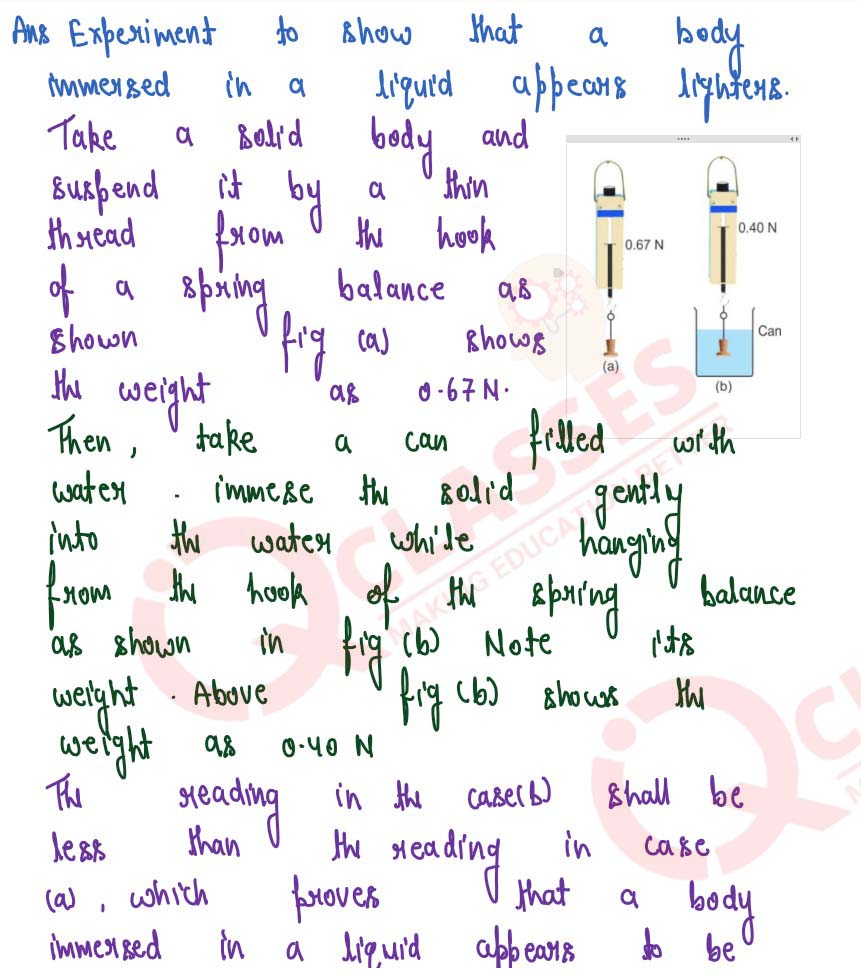 Ans Experiment to show that a body
immersed in a liquid appears lighters.
Take a solid body and
suspend it by a thin
thread from the hook
of a spring balance as
shown fig (a) shows
the weight as 0.67 N.
0.67 N
0.40 N
Can
(a)
(b)
Then, take a can filled with
water. immese the solid gently
into the water while hanging
from the hook of the spring balance
as shown in fig (b) Note its
weight. Above fig (b) shows the
weight as 0.40 N
The reading in the case(b) shall be
less than the reading in case
(a), which proves that a body
immersed in a liquid appears to be
CLASSES
MAKING EDUCATION BETTER